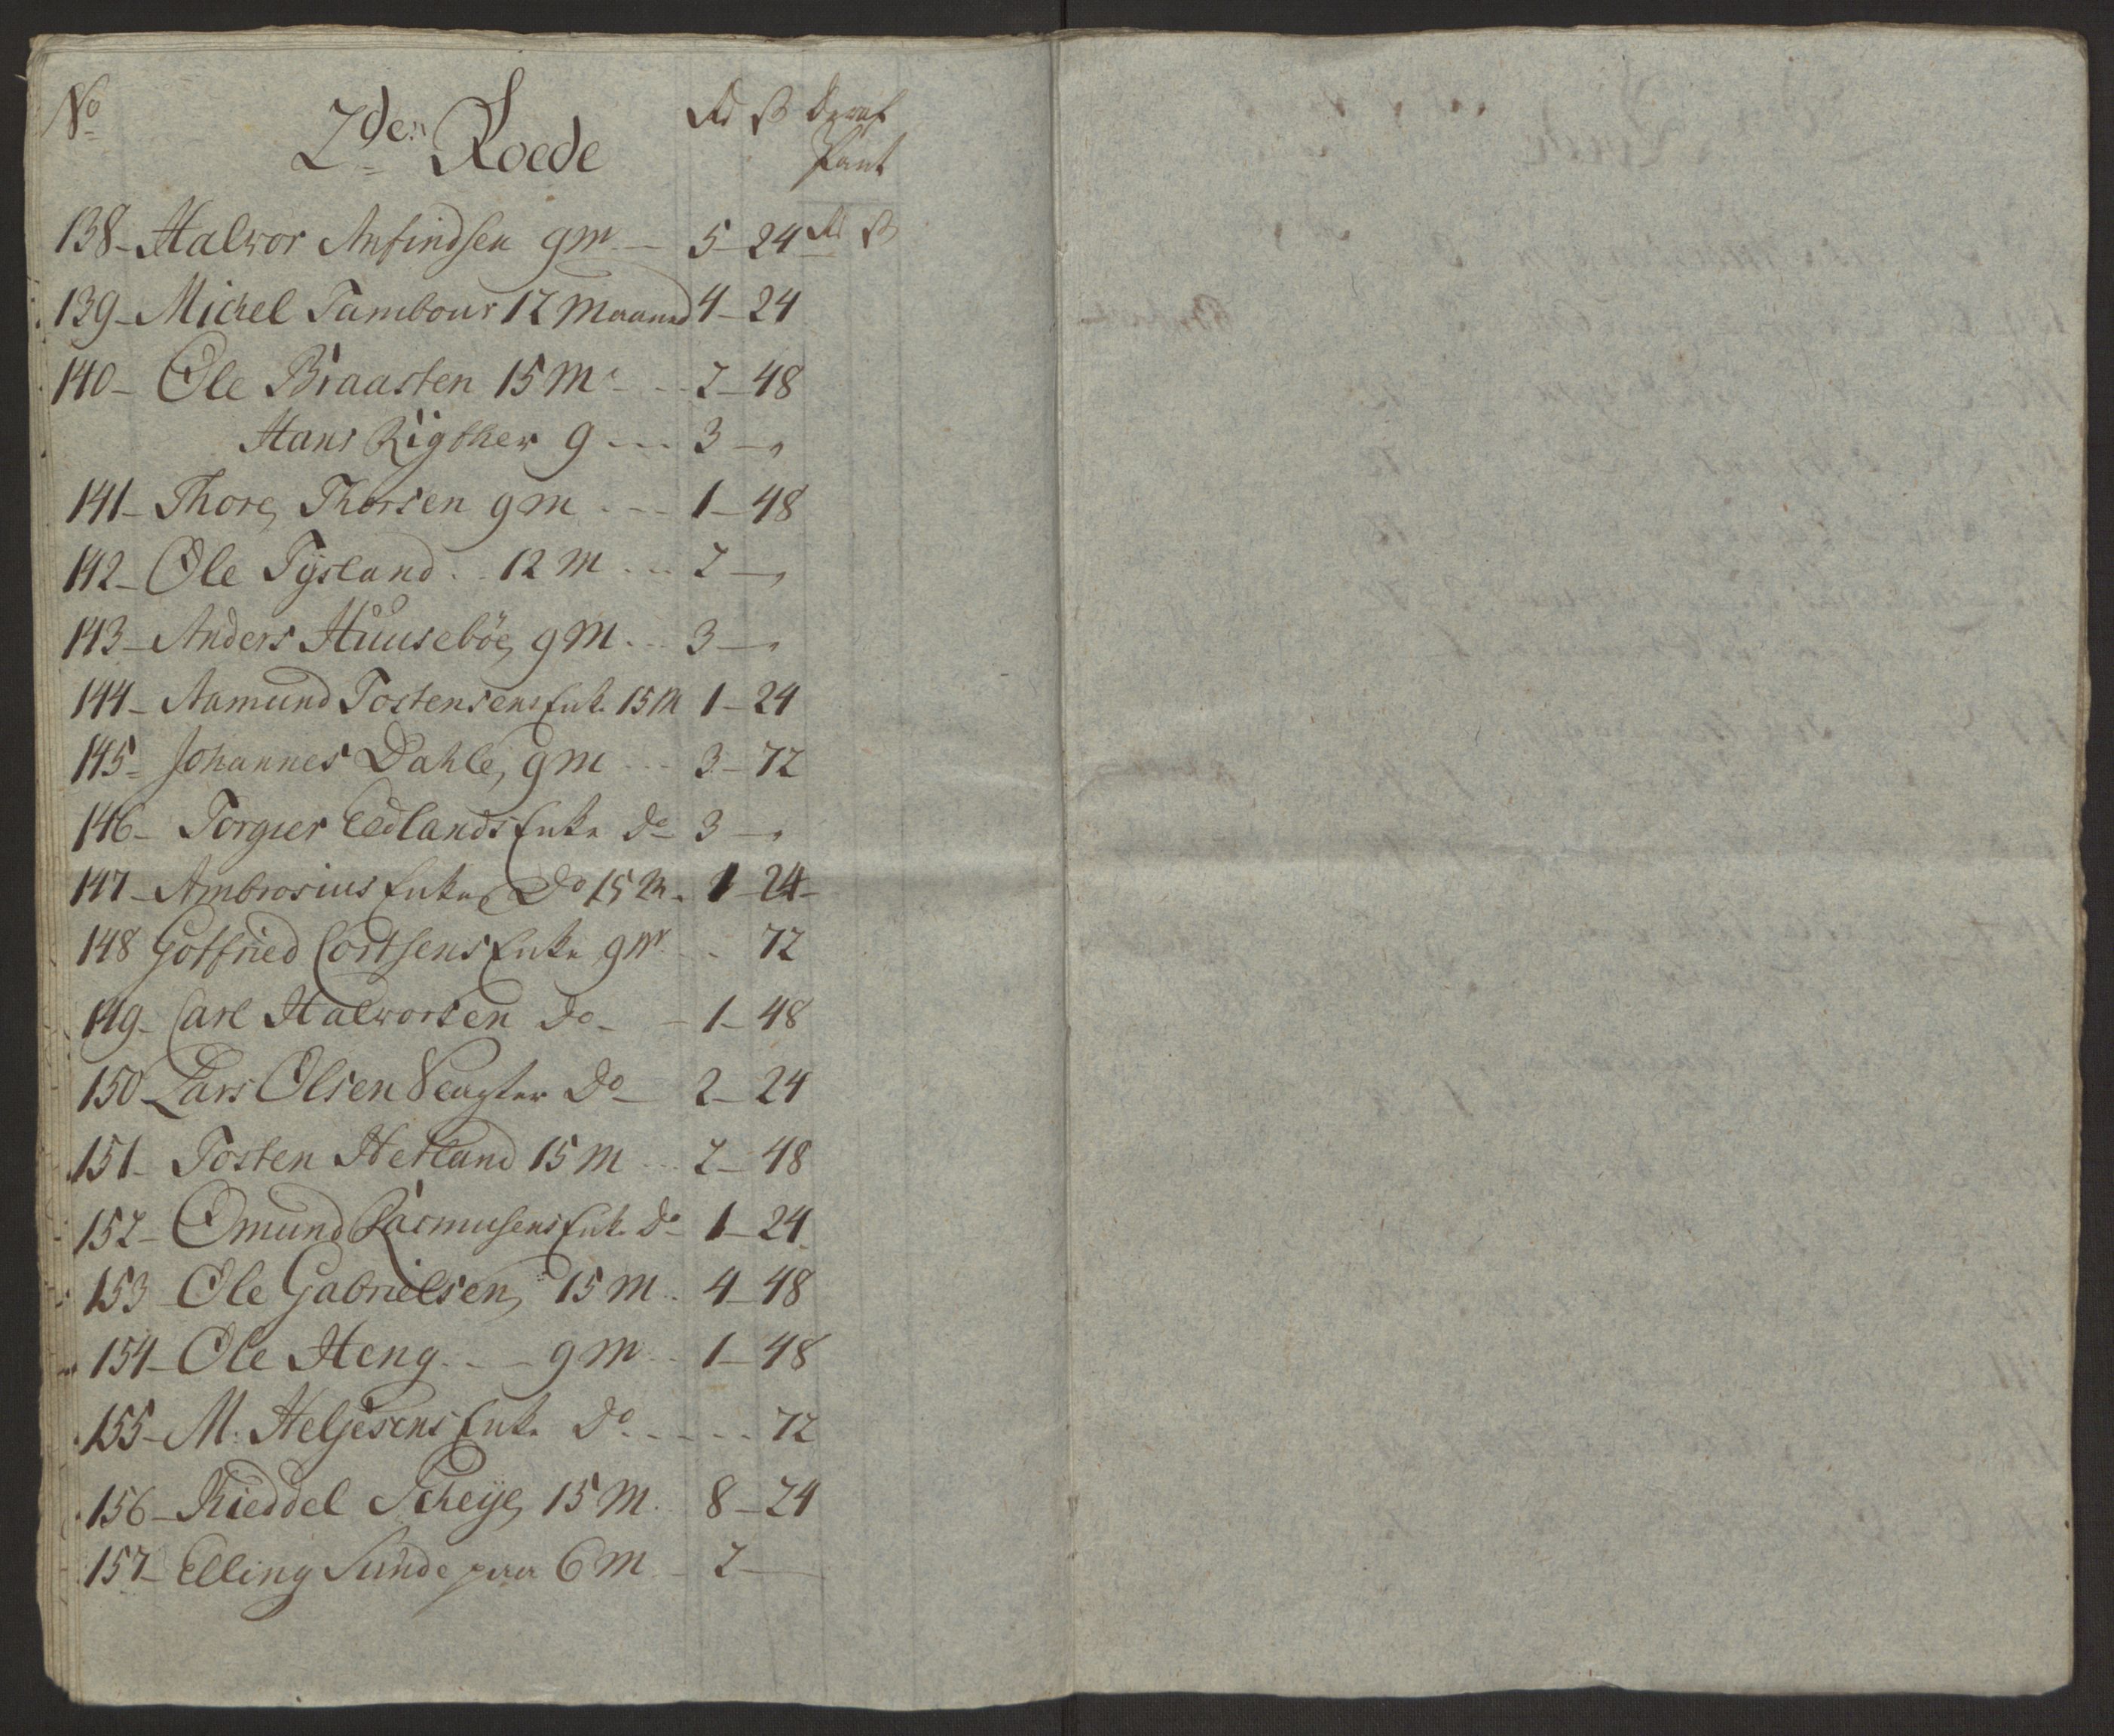 No 2den Roede Rd ß deraf
Pant
138 - Halvor Anfindsen 9 M - 5 - 24 Rd ß
139 - Michel Tambour 12 Maaned 4 - 24
140 - Ole Braasten 15 M - 2 - 48
Hans Rigther 9 - - - 3 - "
141 - Thore Thorsen 9 M - - 1 - 48
142 - Ole Tysland - 12 M - - 2 - "
143 - Anders Huusebøe 9 M - - 3 - "
144 - Aamund Tostensens Enk. 15 M 1 - 24
145 - Johannes Dahle, 9 M - - 3 - 72
146 - Torgier Eedlands Enke do 3 - "
147 - Ambrosius Enke Do 15 M - 1 - 24 -
148 Gotfried Cortsens Enke 9 M - - 72
149 - Carl Halvorsen do - - 1 - 48
150 - Lars Olsen Vegter Do - 2 - 24
151 - Tosten Hetland 15 M - - 2 - 48
152 - Omund Rasmusens Enk. do - 1 - 24
153 - Ole Gabrielsen, 15 M - 4 - 48
154 - Ole Heng - - 9 M - 1 - 48
155 - M. Heljesens Enk. Do - - - - 72
156 - Kieddel Scheije, 15 M - 8 - 24
157 - Elling Sunde paa 6 M - 2 -